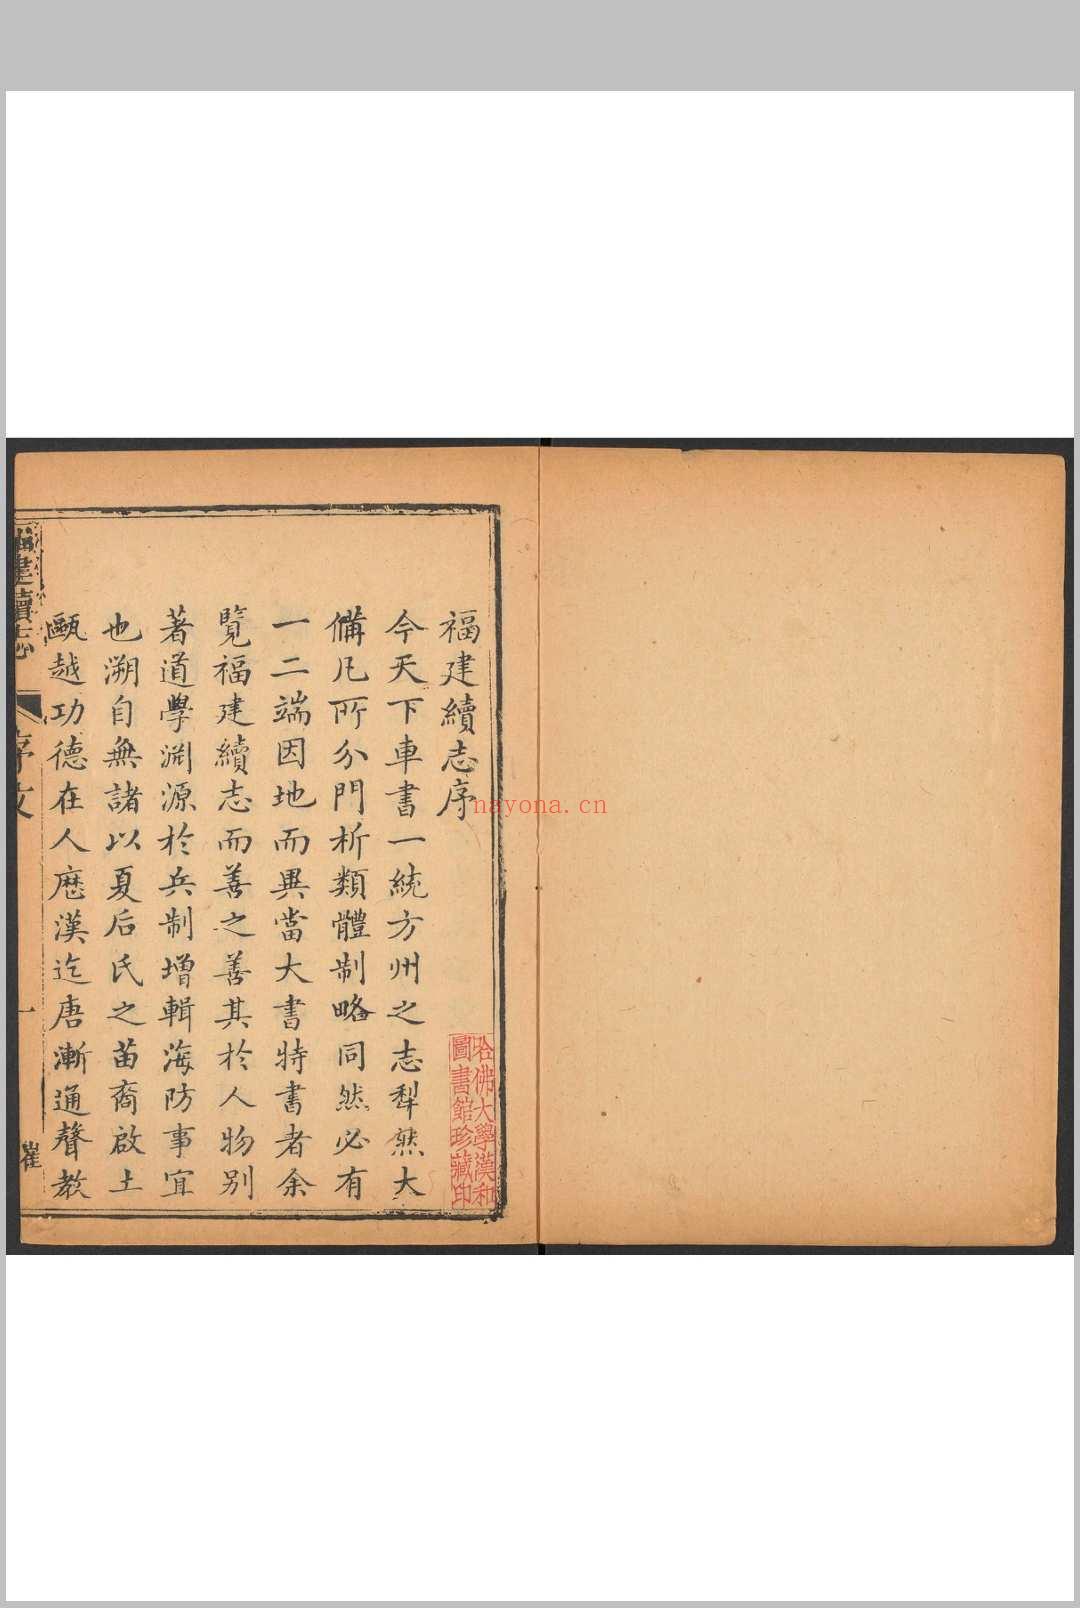 福建續志序
今天下車書一統方州之志犁然大
備凡所分門析類體制略同然必有
一二端因地而異當大書特書者余
覽福建續志而善之善其於人物別
著道學淵源於兵制增輯海防事宜
也溯自無諸以夏后氏之苗裔啟土
甌越功德在人歷漢迄唐漸通聲教
建續志
序文
一
崔
哈佛大學漢和
圖書館珍藏印
nayona.cn